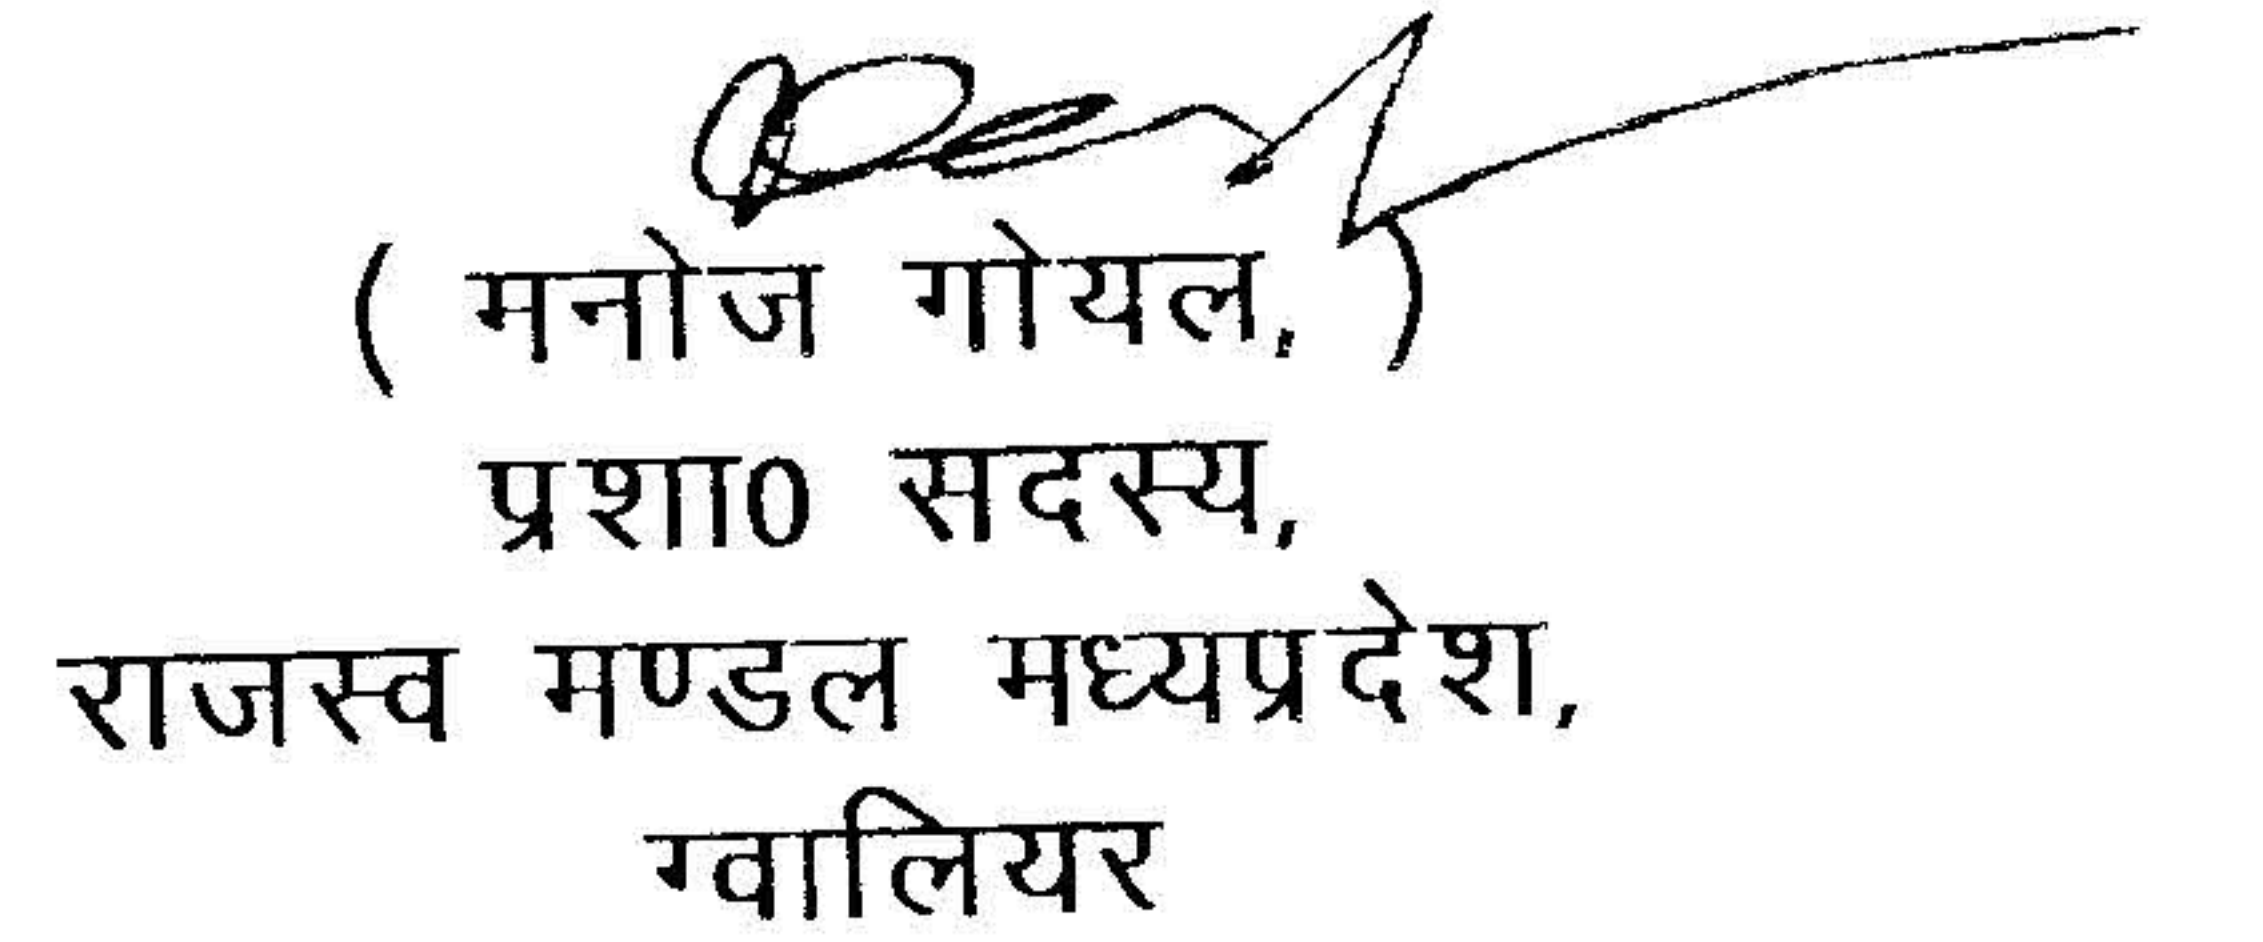 ( मनोज गोयल, )
प्रशा0 सदस्य,
राजस्व मण्डल मध्यप्रदेश,
ग्वालियर